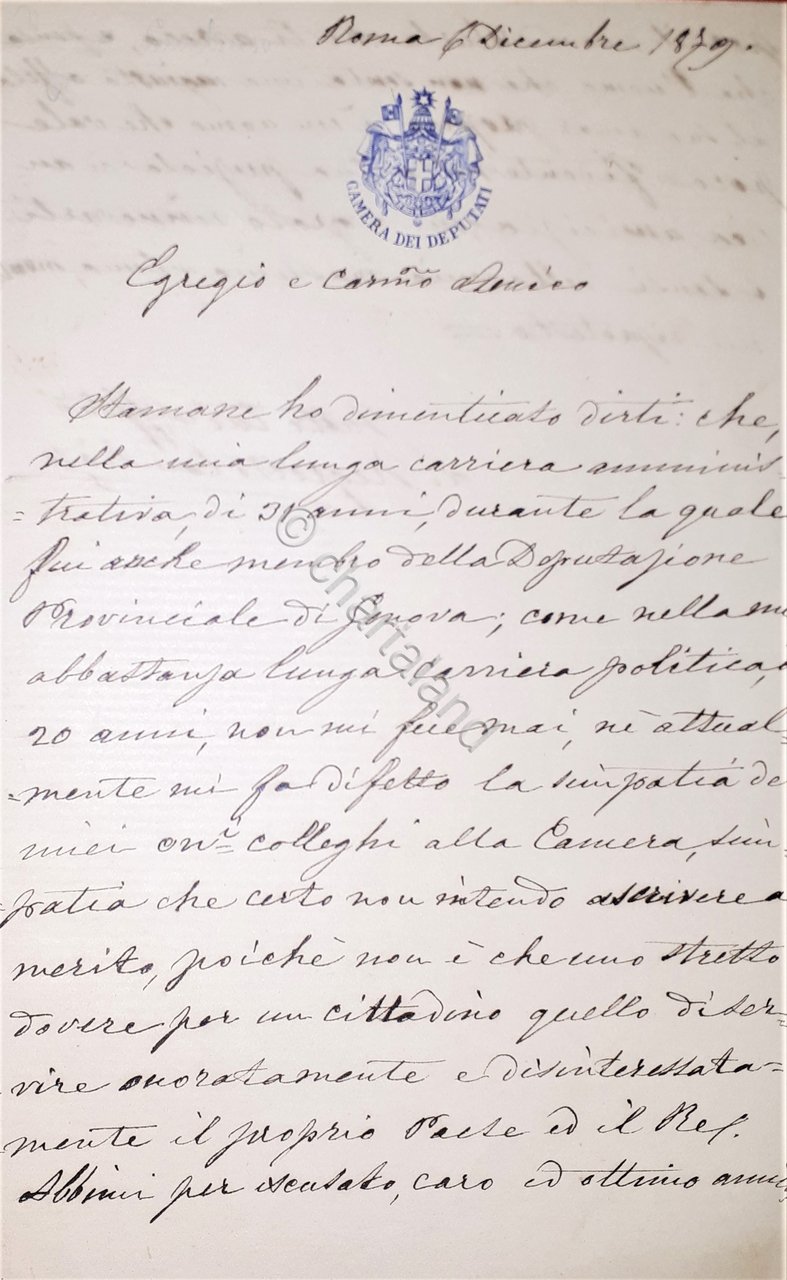 Roma 6 Dicembre 1879.
CAMERA DEI DEPUTATI
Egregio e Carmo Amico
Stamane ho dimenticato dirti: che,
nella mia lunga carriera amminis-
=trativa, di 31 anni, durante la quale
fui anche membro della Deputazione
Provinciale di Genova; come nella mi
abbastanza lunga carriera politica,
20 anni, non mi fece mai, nè attual=
=mente mi fa difetto la simpatia de
miei oni colleghi alla Camera, sim=
=patia che certo non intendo ascrivere a
merito, poichè non è che uno stretto
dovere per un cittadino quello di ser=
vire onoratamente e disinteressata=
mente il proprio Paese ed il Re.
Abbimi per iscusato, caro ed ottimo amic
© chartaland